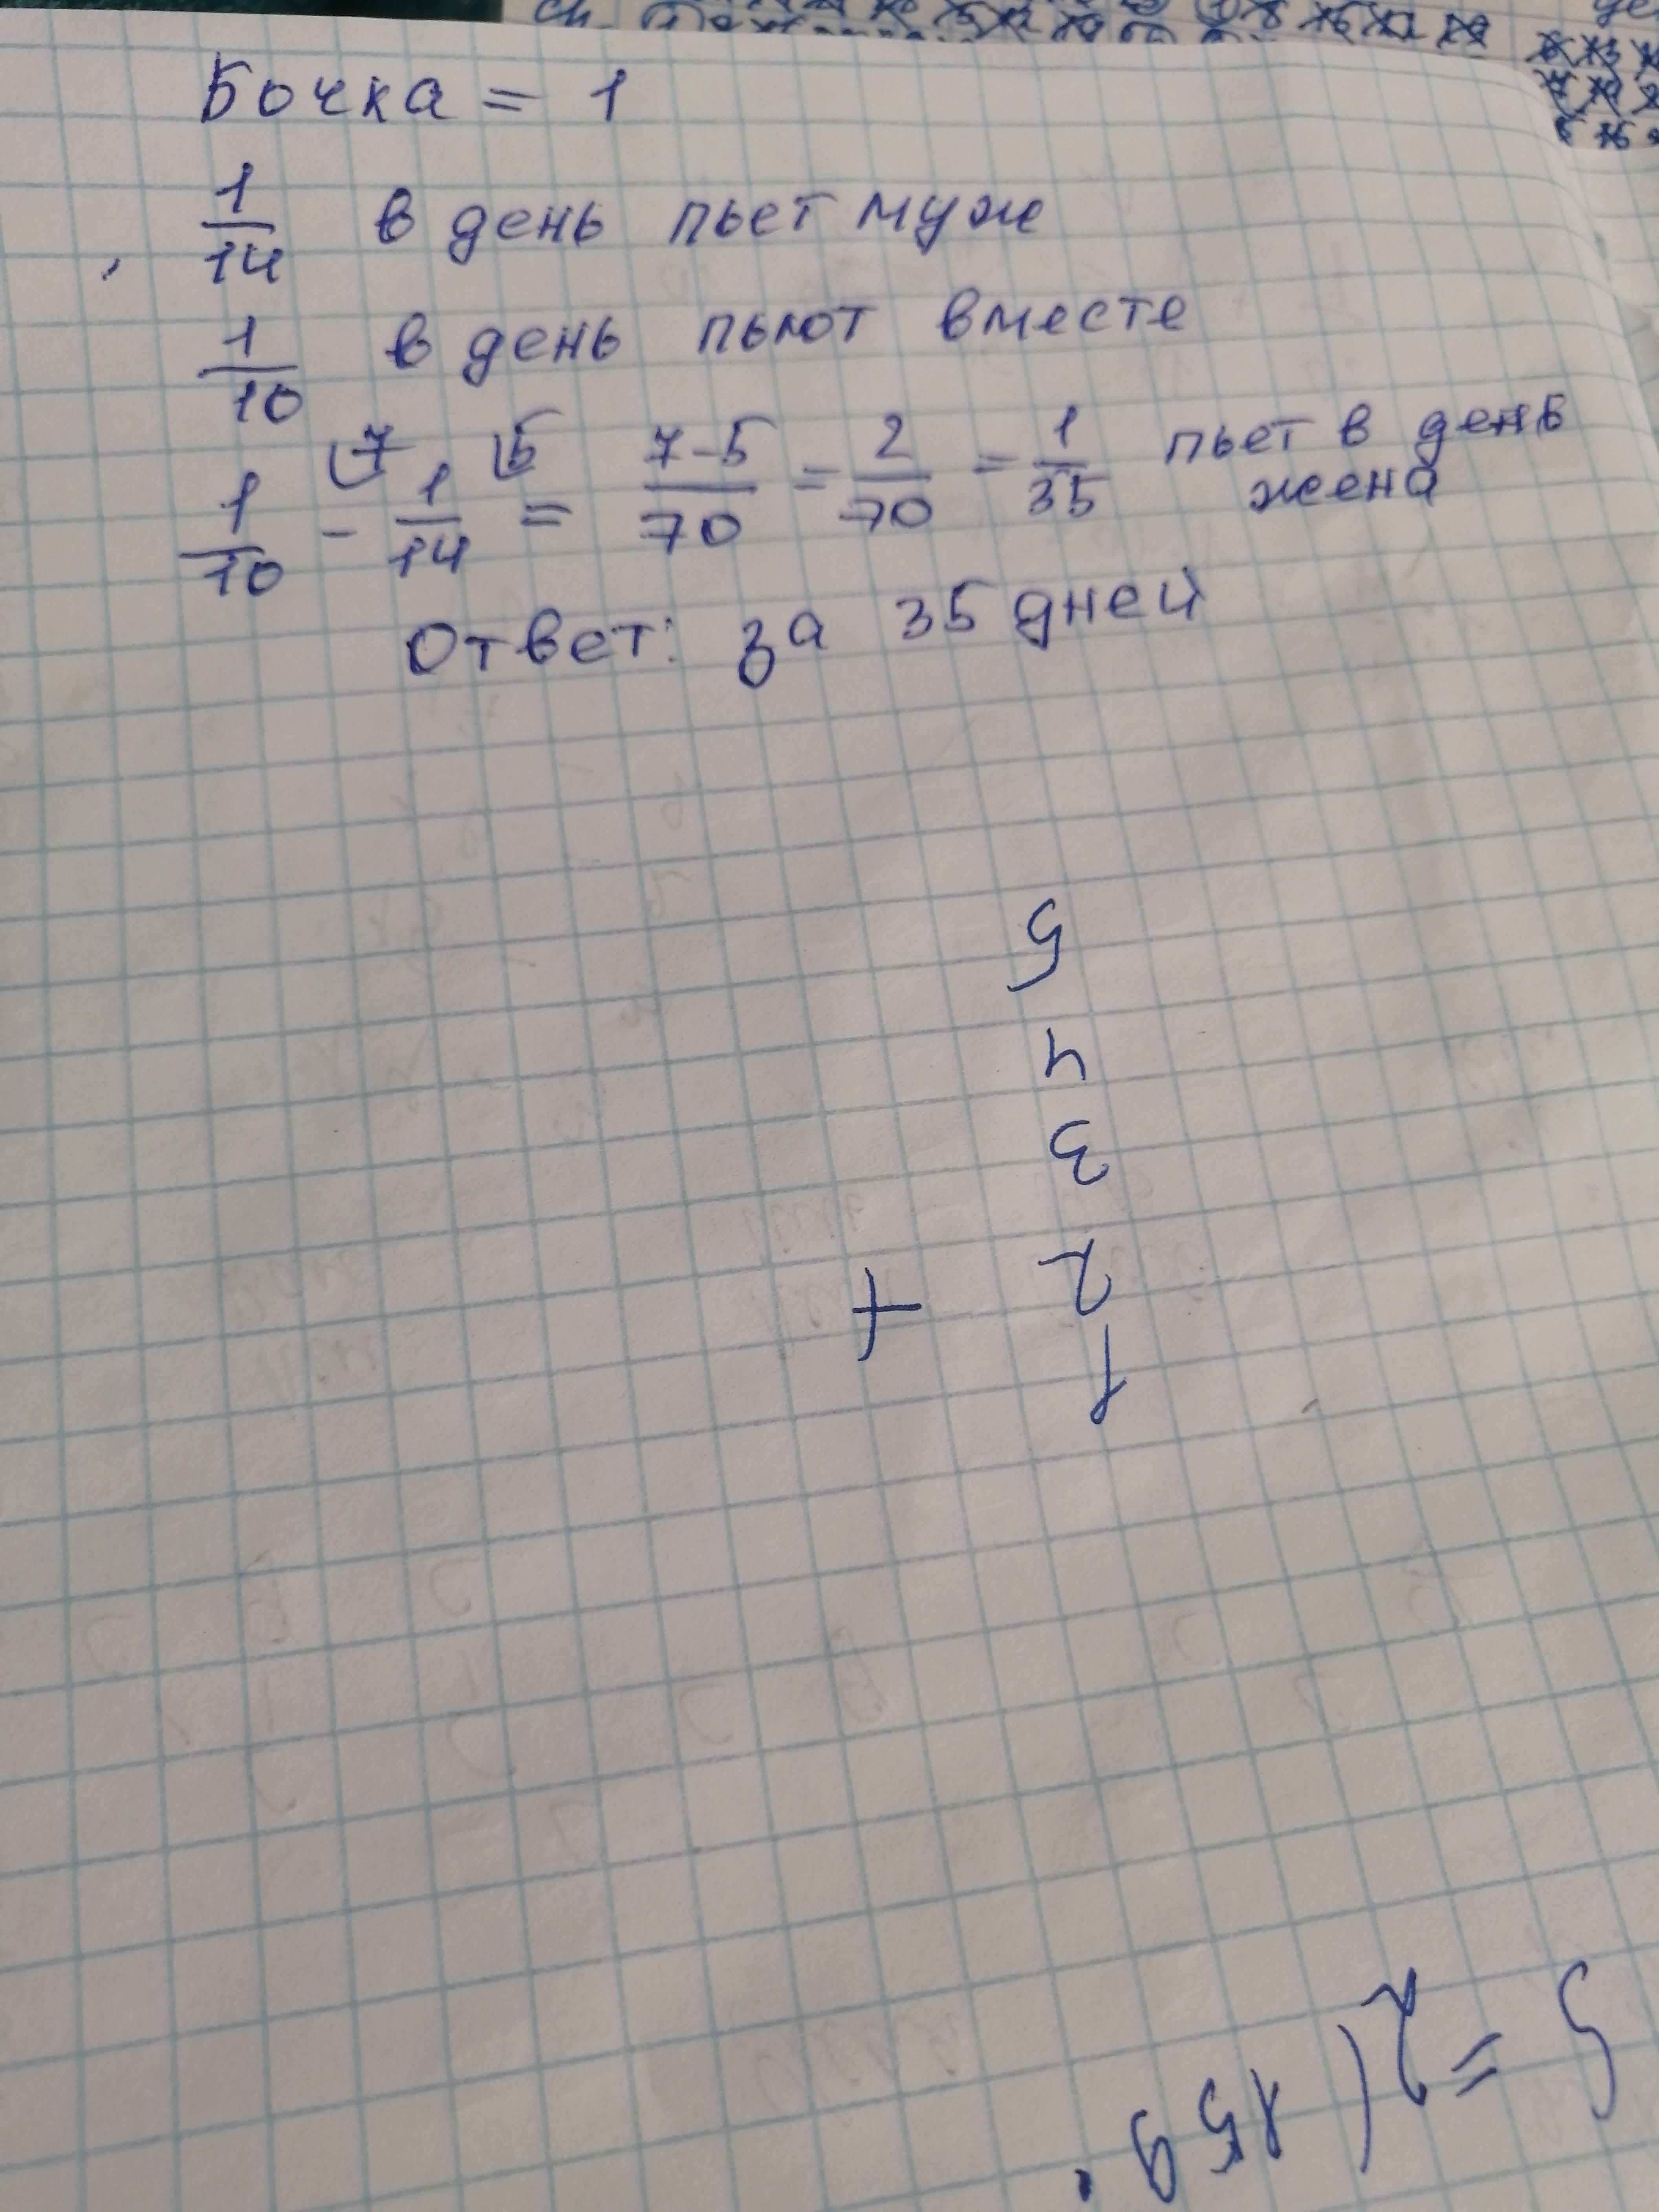 Бочка = 1
1/14 в день пьет муж
1/10 в день пьют вместе
1/10 - 1/14 = 7-5/70 = 2/70 = 1/35 пьет в день жена
7 5
Ответ: за 35 дней
5
4
3
2
+
1